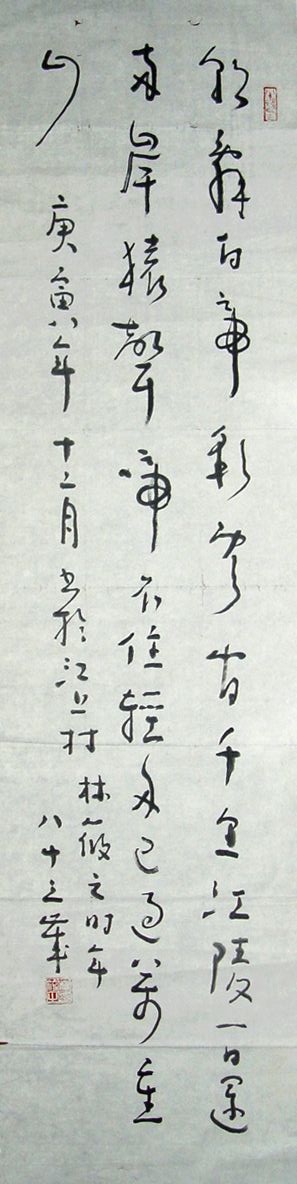 朝辭白帝彩雲間千里江陵一日還
兩岸猿聲啼不住輕舟已過萬重
山
庚寅年十二月書於江上村
林筱之時年
八十三歲